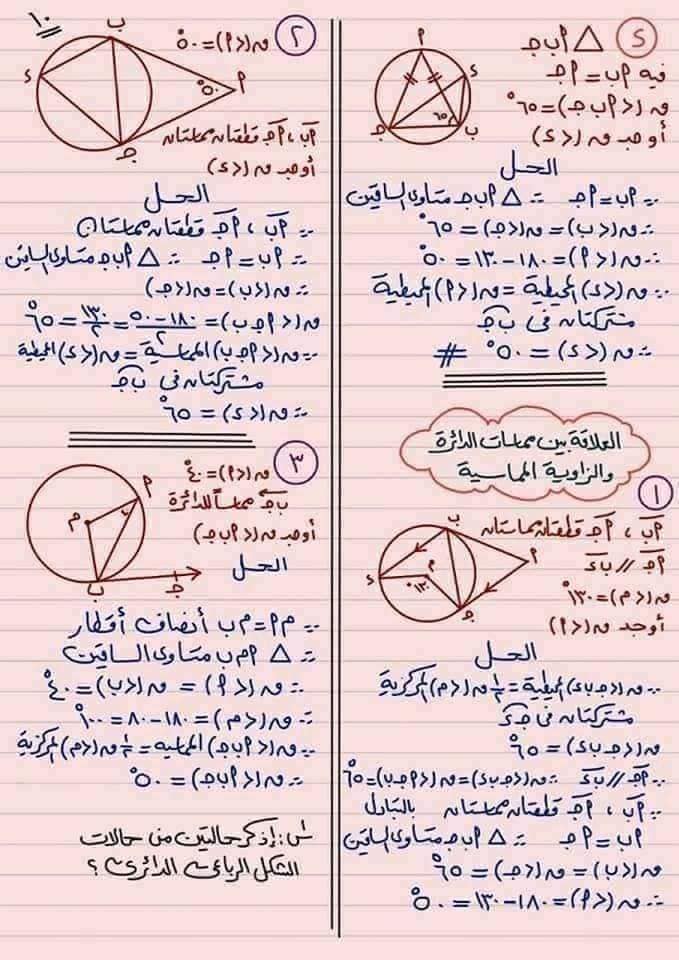 ١٠
٤
△ أ ب جـ
فيه أب = أجـ
ق(>أ ب جـ) = ٦٥°
أوجد ق(>د)
الحل
∵ أب = أجـ ∴ △ أ ب جـ متساوى الساقين
∴ ق(>ب) = ق(>جـ) = ٦٥°
∴ ق(>أ) = ١٨٠ - ١٣٠ = ٥٠°
∵ ق(>د) المحيطية = ق(>أ) المحيطية
مشتركتان فى ب جـ
∴ ق(>د) = ٥٠° #
العلاقة بين مماسات الدائرة
والزاوية المماسية
١
أب ، أجـ قطعتان مماستان
أجـ // ب د
ق(>م) = ١٣٠°
أوجد ق(>أ)
الحل
∵ ق(>جـ ب د) المحيطية = ١/٢ ق(>م) المركزية
مشتركتان فى جـ د
ق(>جـ ب د) = ٦٥°
∵ أجـ // ب د ∴ ق(>جـ ب د) = ق(>أ جـ ب) = ٦٥°
بالتبادل
∵ أب ، أجـ قطعتان مماستان
أب = أجـ ∴ △ أ ب جـ متساوى الساقين
ق(>ب) = ق(>جـ) = ٦٥°
∴ ق(>أ) = ١٨٠ - ١٣٠ = ٥٠°
٢
ق(>أ) = ٥٠°
أب ، أجـ قطعتان مماستان
أوجد ق(>د)
الحل
∵ أب ، أجـ قطعتان مماستان
∴ أب = أجـ ∴ △ أ ب جـ متساوى الساقين
∴ ق(>ب) = ق(>جـ)
ق(>أ جـ ب) = ١٨٠ - ٥٠/٢ = ١٣٠/٢ = ٦٥°
∵ ق(>أ جـ ب) المماسية = ق(>د) المحيطية
مشتركتان فى ب جـ
∴ ق(>د) = ٦٥°
٣
ق(>أ) = ٤٠°
ب جـ مماساً للدائرة
أوجد ق(>أ ب جـ)
الحل
∵ م أ = م ب أنصاف أقطار
∴ △ أ م ب متساوى الساقين
∴ ق(>أ) = ق(>ب) = ٤٠°
∴ ق(>م) = ١٨٠ - ٨٠ = ١٠٠°
∵ ق(>أ ب جـ) المماسية = ١/٢ ق(>م) المركزية
∴ ق(>أ ب جـ) = ٥٠°
س: إذكر حالتين من حالات
الشكل الرباعى الدائرى ؟